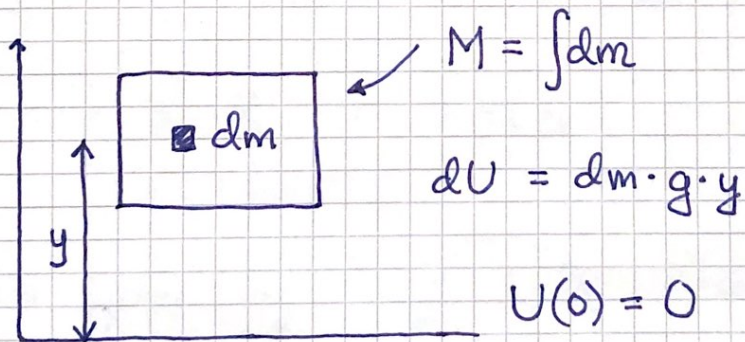 M = ∫dm
dm
dU = dm·g·y
y
U(0) = 0